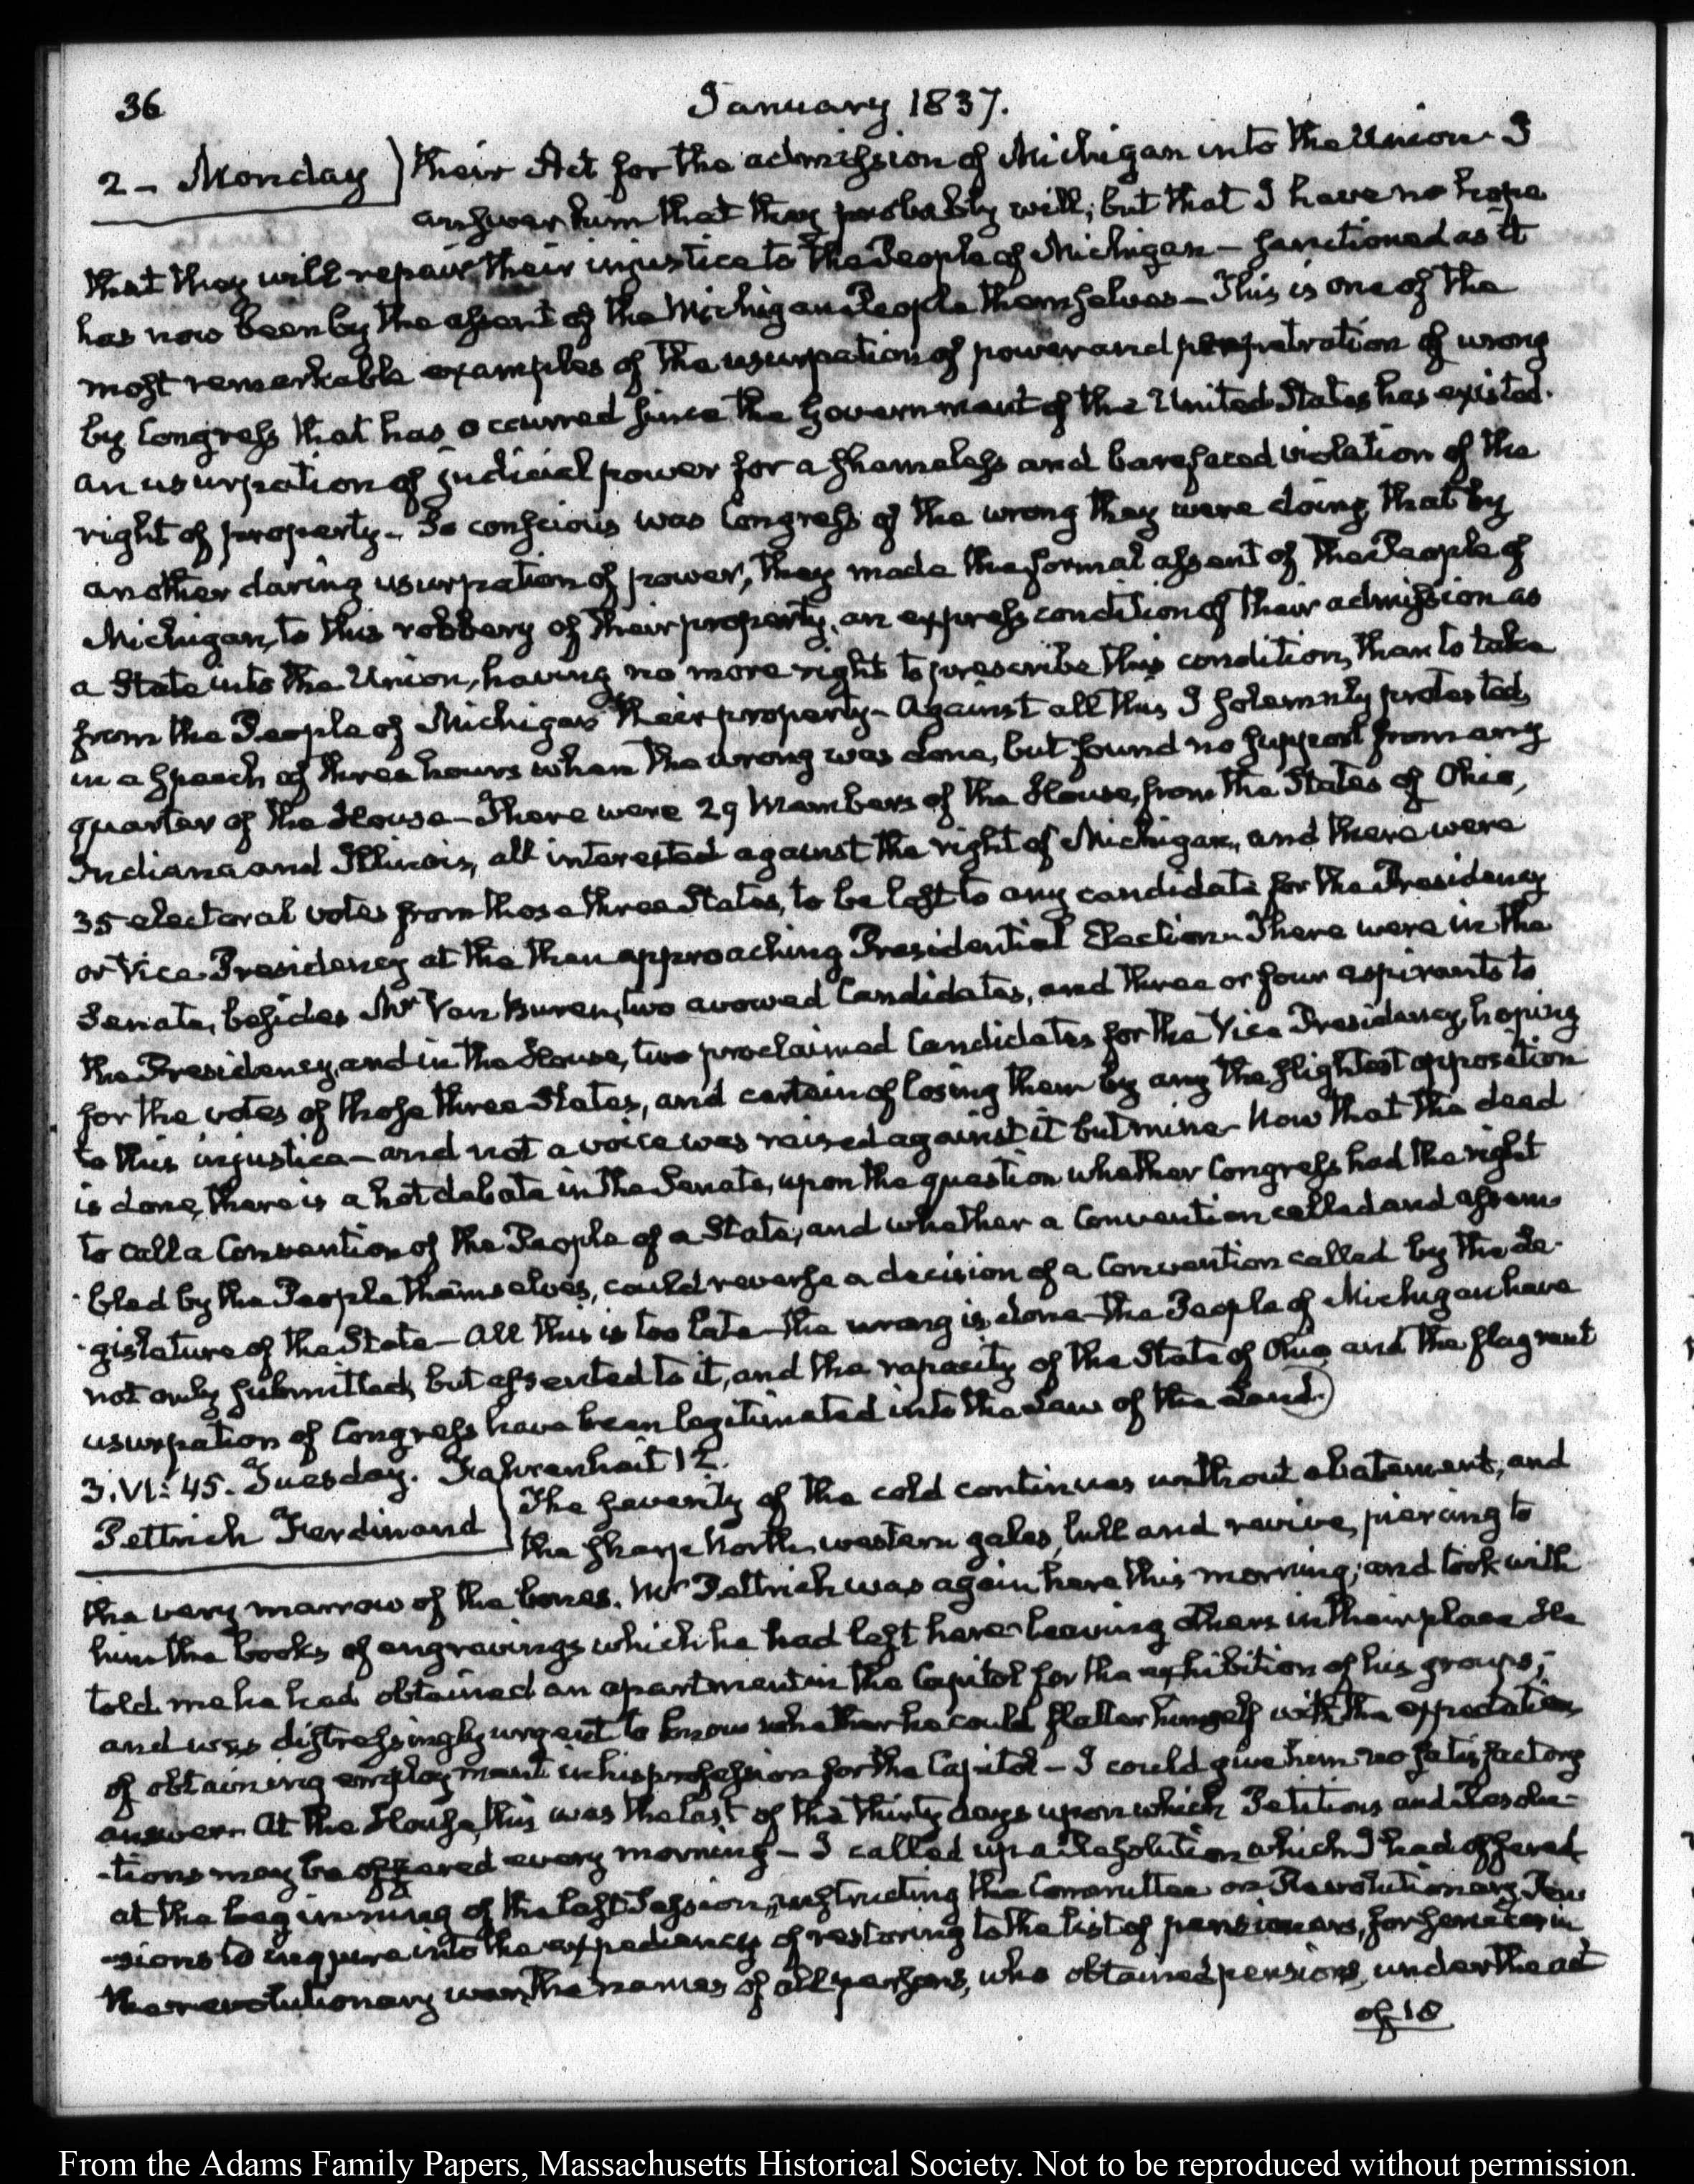 36
January 1837.
2 - Monday
their Act for the admission of Michigan into the Union - I
answer him that they probably will; but that I have no hope
that they will repair their injustice to the People of Michigan - sanctioned as it
has now been by the assent of the Michigan People themselves - This is one of the
most remarkable examples of the usurpation of power and perpetration of wrong
by Congress that has occurred since the Government of the United States has existed.
an usurpation of judicial power for a shameless and barefaced violation of the
right of property - So conscious was Congress of the wrong they were doing that by
another daring usurpation of power, they made the formal assent of the People of
Michigan, to this robbery of their property, an express condition of their admission as
a State into the Union, having no more right to prescribe this condition, than to take
from the People of Michigan their property - Against all this I solemnly protested,
in a speech of three hours when the wrong was done, but found no support from any
quarter of the House - There were 29 Members of the House, from the States of Ohio,
Indiana and Illinois, all interested against the right of Michigan, and there were
35 electoral votes from those three States, to be lost to any candidate for the Presidency
or Vice Presidency at the then approaching Presidential Election - There were in the
Senate, besides Mr Van Buren, two avowed Candidates, and three or four aspirants to
the Presidency, and in the House, two proclaimed Candidates for the Vice Presidency, hoping
for the votes of those three States, and certain of losing them by any the slightest opposition
to this injustice - and not a voice was raised against it but mine - Now that the deed
is done, there is a hot debate in the Senate, upon the question whether Congress had the right
to call a Convention of the People of a State, and whether a Convention called and assem-
-bled by the People themselves, could reverse a decision of a Convention called by the Le-
-gislature of the State - All this is too late - the wrong is done - the People of Michigan have
not only submitted, but assented to it, and the rapacity of the State of Ohio and the flagrant
usurpation of Congress have been legitimated into the Law of the Land.
3. VI: 45. Tuesday. Fahrenheit 12.
Pettrich Ferdinand
The severity of the cold continues without abatement, and
the sharp North western gales, lull and revive, piercing to
the very marrow of the bones. Mr Pettrich was again here this morning; and took with
him the books of engravings which he had left here leaving others in their place He
told me he had obtained an apartment in the Capitol for the exhibition of his groups;
and was distressingly urgent to know whether he could flatter himself with the expectation
of obtaining employment in his profession for the Capitol - I could give him no satisfactory
answer. At the House, this was the last of the thirty days upon which Petitions and Resolu-
-tions may be offered every morning - I called up a Resolution which I had offered
at the beginning of the last Session, instructing the Committee on Revolutionary Pen
-sions to inquire into the expediency of restoring to the list of pensioners, for service in
the revolutionary war, the names of all persons, who obtained pensions, under the act
of 18
From the Adams Family Papers, Massachusetts Historical Society. Not to be reproduced without permission.